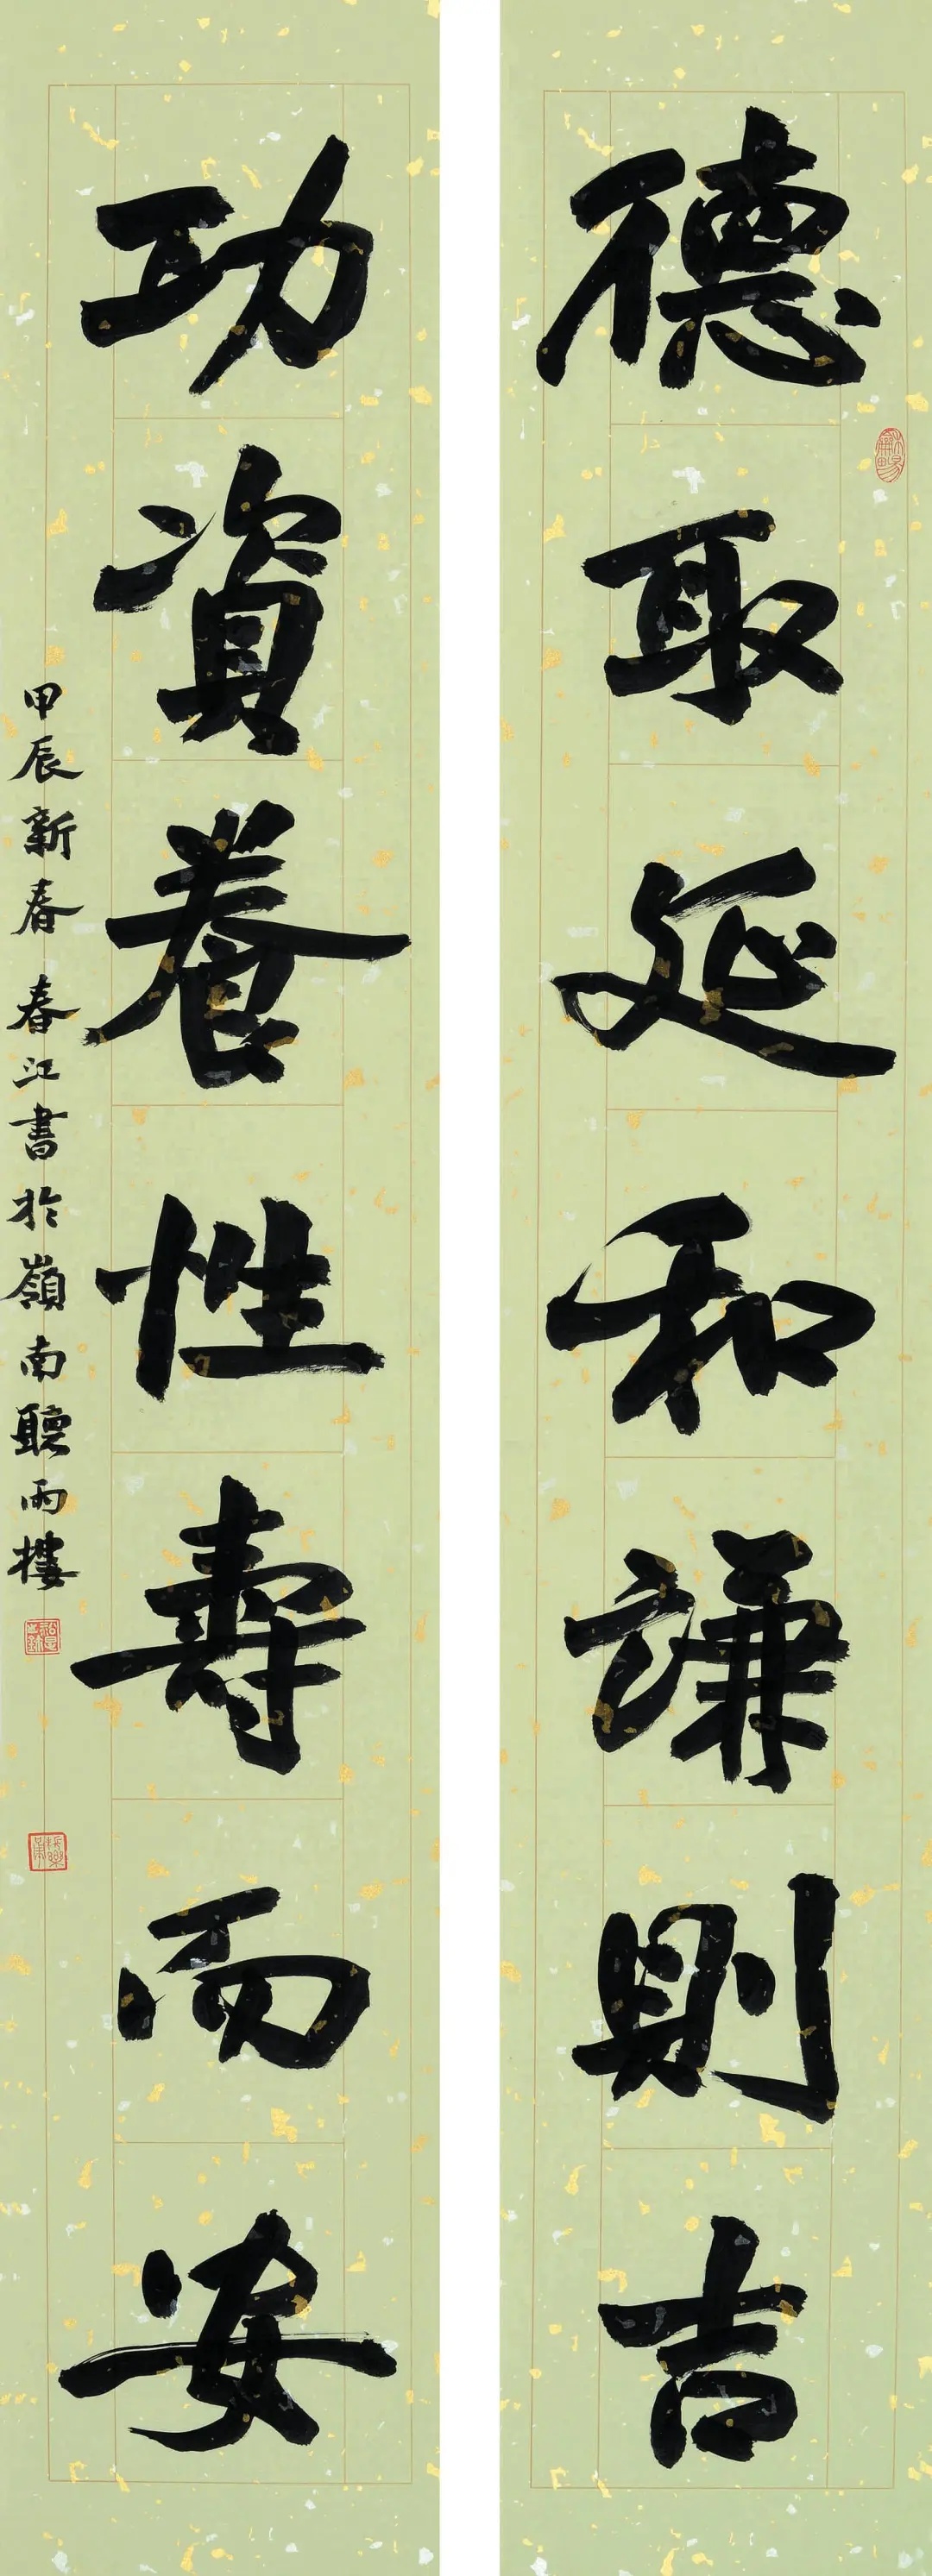 德取延和謙則吉
功資養性壽而安
甲辰新春春江書於嶺南聽雨樓